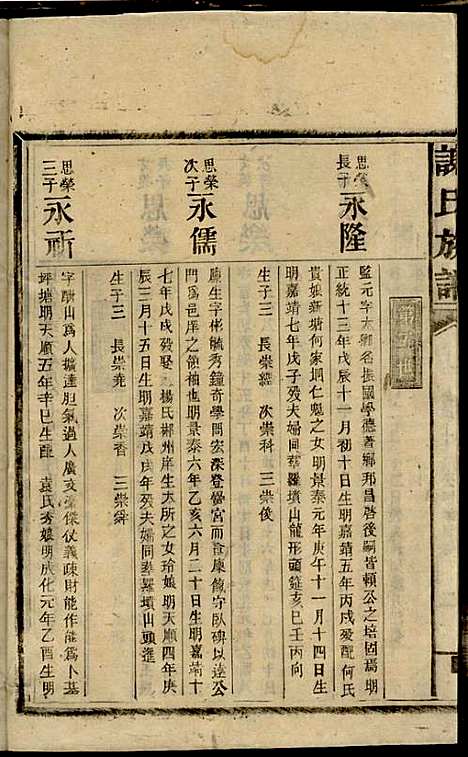 謝氏族譜
思榮長子永隆
監元字太卿名振國學德著鄉邦昌啓後嗣皆賴公之培固焉明
正統十三年戊辰十一月初十日生明嘉靖五年丙戌歿配何氏
貴娘新塘何家垌仁魁之女明景泰元年庚午十一月十四日生
明嘉靖七年戊子歿夫婦同葬羅墳山龍形頭筵亥巳壬丙向
生子三 長崇 次崇科 三崇俊
思榮次子永儒
廩生字彬號毓秀鐘奇學問宏深登黌宮而食廩餼守臥碑以達公
門為邑庠之領袖也明景泰六年乙亥六月二十日生明嘉靖十
七年戊戌歿娶楊氏郴州庠生太所之女玲娘明天順四年庚
辰三月十五日生明嘉靖戊戌年歿夫婦同葬羅墳山頭進
生子三 長崇堯 次崇香 三崇舜
思榮三子永祈
字酬山為人擴達胆氣過人廣交豪傑仗義疎財能作能為卜基
坪塘明天順五年辛巳生配袁氏秀娘明成化元年乙酉生明